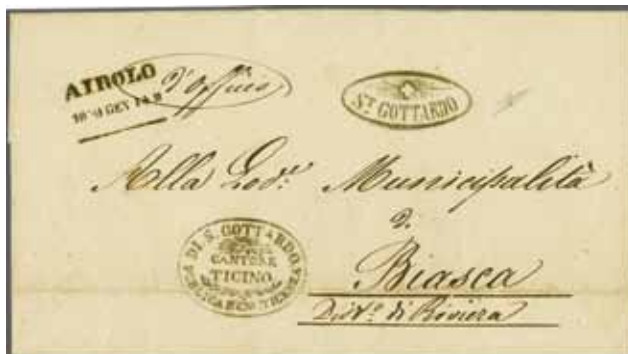 AIROLO
d'Officio
GEN
ST GOTTARDO
Alla Lod.e Municipalità
di
Biasca
Dist.o di Riviera
DI S. GOTTARDO
CANTONE
TICINO